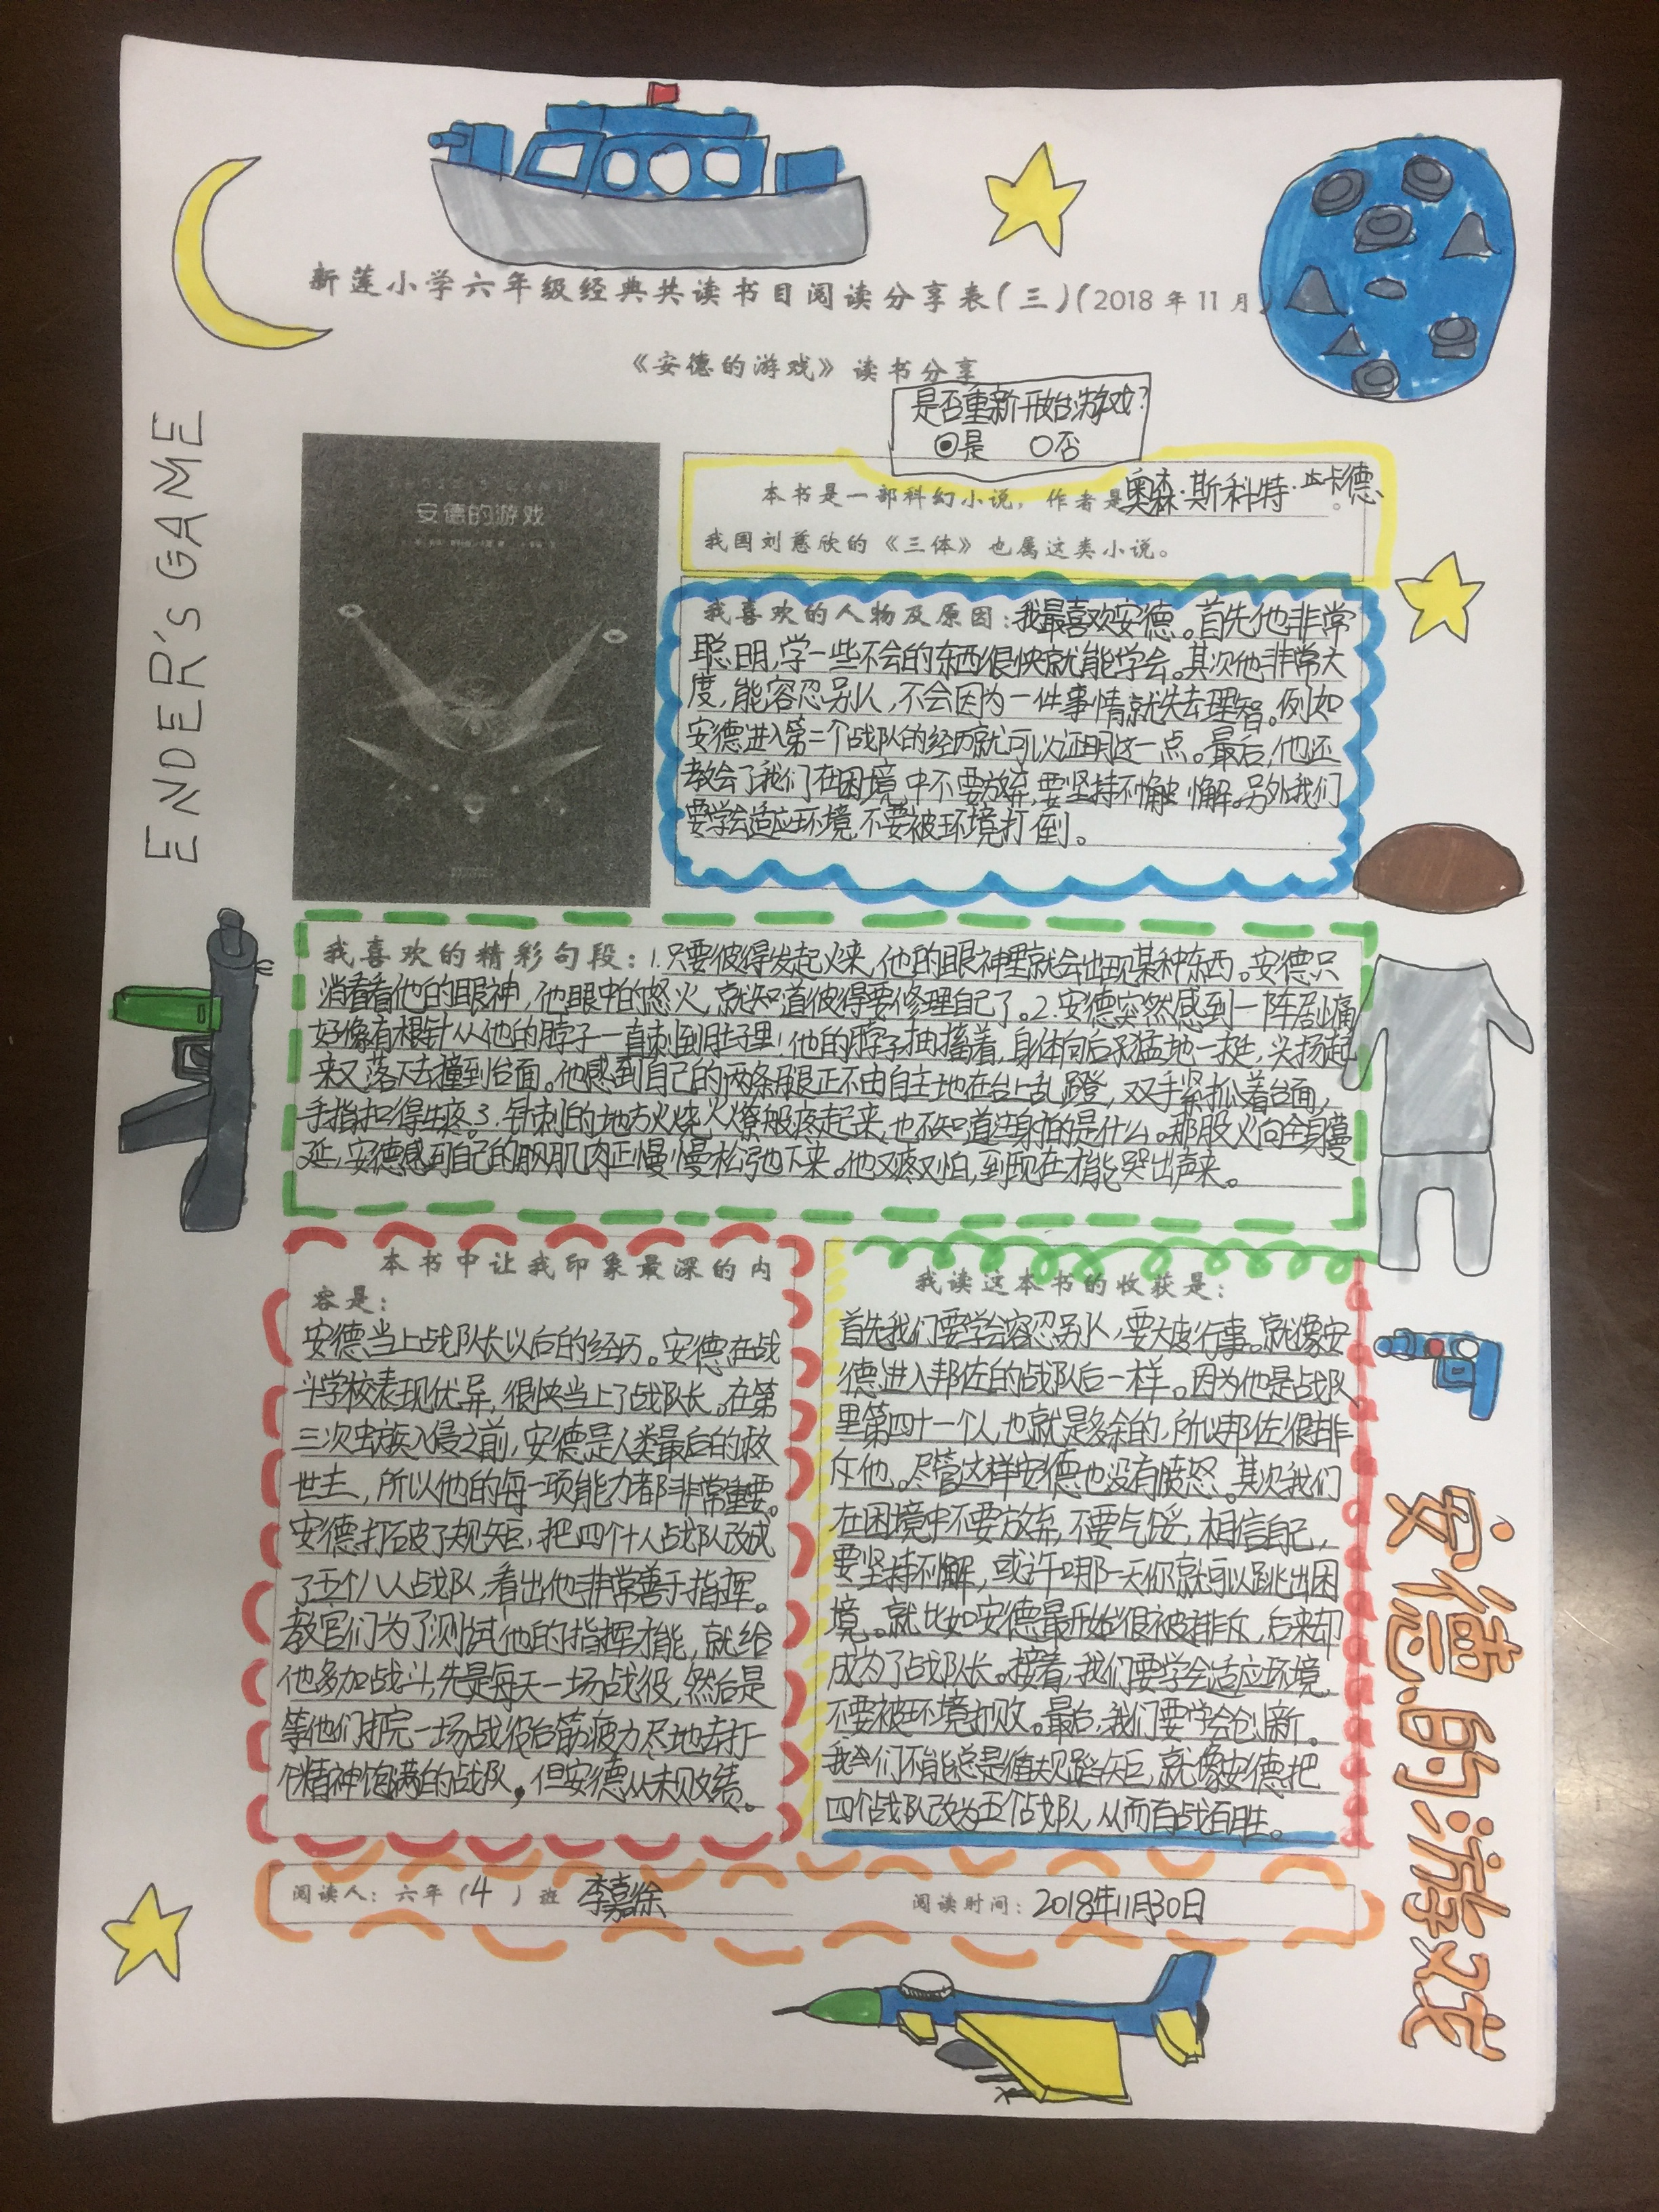 新莲小学六年级经典共读书目阅读分享表(三)(2018年11月)
《安德的游戏》读书分享
是否重新开始游戏?
是 否
ENDER's GAME
安德的游戏
本书是一部科幻小说,作者是奥森·斯科特·卡德。
我国刘慈欣的《三体》也属这类小说。
我喜欢的人物及原因:我最喜欢安德。首先他非常
聪明,学一些不会的东西很快就能学会。其次他非常大
度,能容忍别人,不会因为一件事情就失去理智。例如
安德进入第二个战队的经历就可以证明这一点。最后,他还
教会了我们在困境中不要放弃,要坚持不懈。另外我们
要学会适应环境,不要被环境打倒。
我喜欢的精彩句段:1.只要彼得发起火来,他的眼神里就会出现某种东西。安德只
消看看他的眼神,他眼中的怒火,就知道彼得要修理自己了。2.安德突然感到一阵剧痛
好像有根针从他的脖子一直刺到肚子里!他的脖子抽搐着,身体向后猛地一挺,头扬起
来又落下去撞到台面。他感到自己的两条腿正不由自主地在台上乱蹬,双手紧抓着台面,
手指扣得生疼。3.针刺的地方火烧火燎般疼起来,也不知道注射的是什么。那股火向全身蔓
延,安德感到自己的肌肉正慢慢松弛下来。他又疼又怕,到现在才能哭出声来。
本书中让我印象最深的内
容是:
安德当上战队长以后的经历。安德在战
斗学校表现优异,很快当上了战队长。在第
三次虫族入侵之前,安德是人类最后的救
世主,所以他的每一项能力都非常重要。
安德打破了规矩,把四个十人战队改成
了五个八人战队,看出他非常善于指挥。
教官们为了测试他的指挥才能,就给
他多加战斗,先是每天一场战役,然后是
等他们打完一场战役后筋疲力尽地去打一
个精神饱满的战队,但安德从未败绩。
我读这本书的收获是:
首先我们要学会容忍别人,要大度行事。就像安
德进入邦佐的战队后一样。因为他是战队
里第四十一个人,也就是多余的,所以邦佐很排
斥他。尽管这样安德也没有愤怒。其次我们
在困境中不要放弃,不要气馁,相信自己,
要坚持不懈,或许哪一天你就可以跳出困
境。就比如安德最开始很被排斥,后来却
成为了战队长。接着,我们要学会适应环境,
不要被环境打败。最后,我们要学会创新。
我们不能总是循规蹈矩,就像安德把
四个战队改为五个战队,从而百战百胜。
安德的游戏
阅读人:六年(4)班 李嘉徐 阅读时间:2018年11月30日